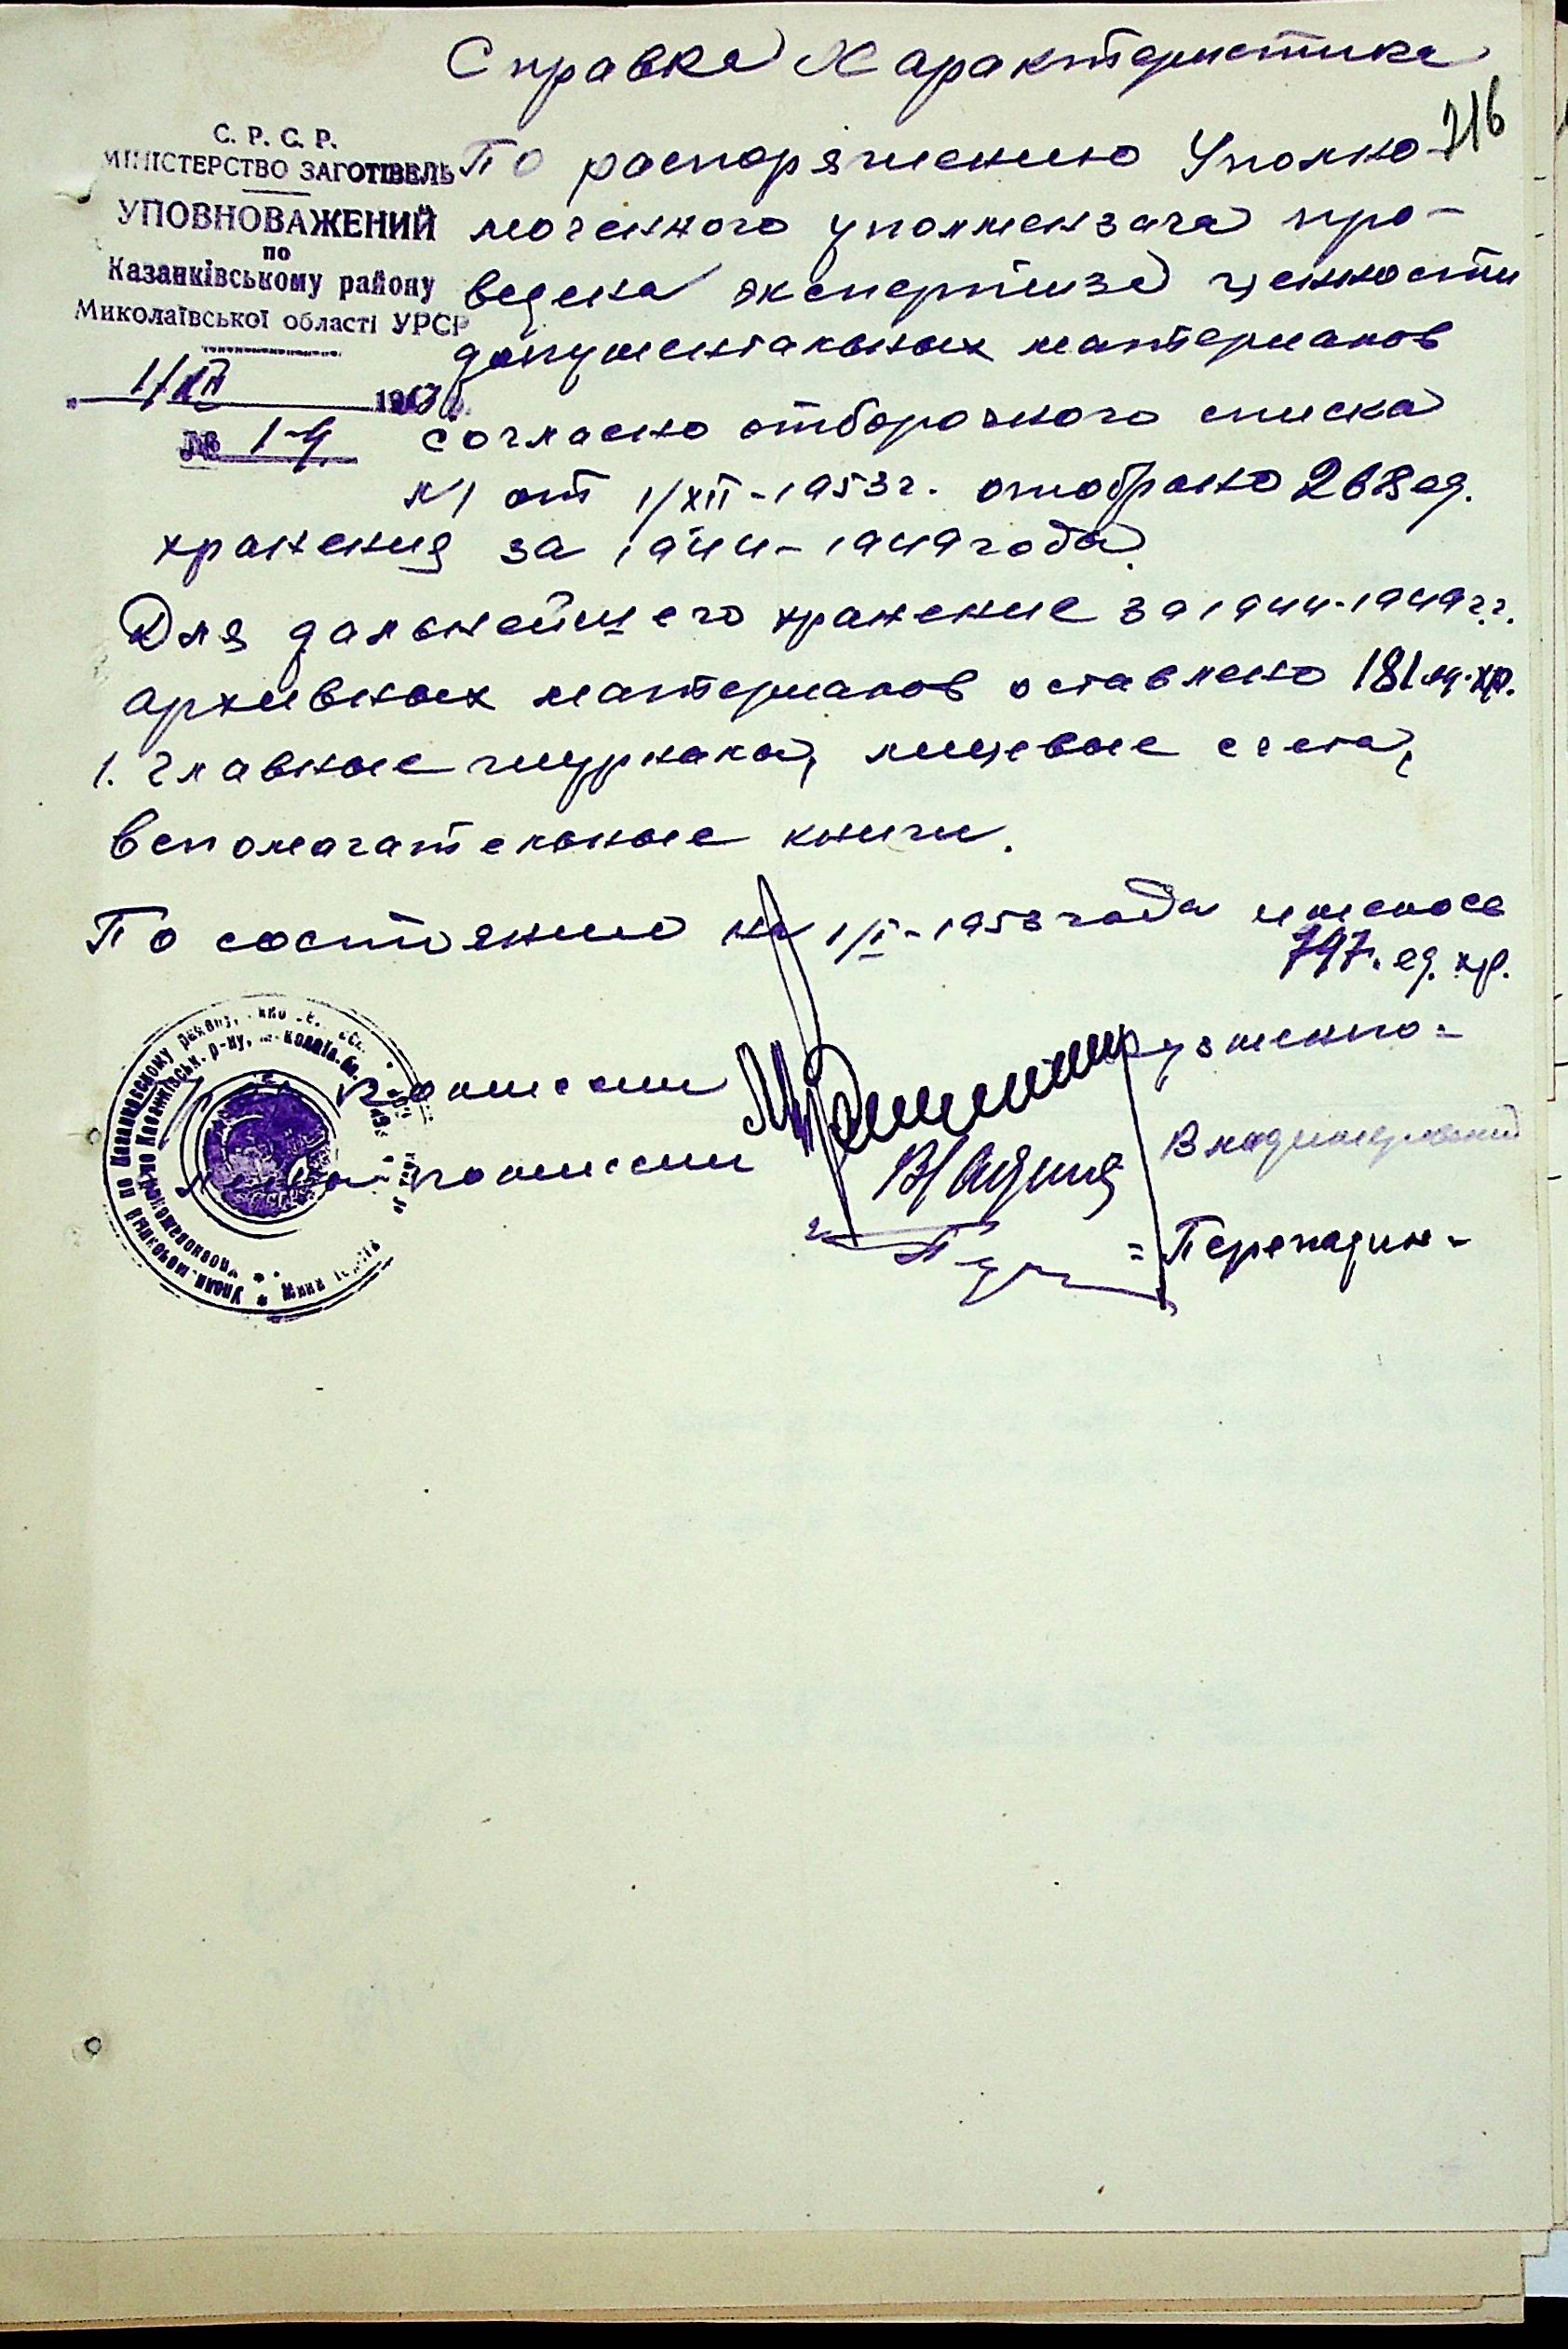 Справка Характеристика
216
С. Р. С. Р.
МІНІСТЕРСТВО ЗАГОТІВЕЛЬ
УПОВНОВАЖЕНИЙ
по
Казанківському району
Миколаївської області УРСР
1/XII 1953 р.
№ 1-4
По распоряжению Уполно-
моченного уполмензага про-
ведена экспертиза ценности
документальных материалов
согласно отборочного списка
№1 от 1/XII-1953г. отобрано 268 ед.
хранения за 1944-1949 года.
Для дальнейшего хранение за 1944-1949 г.г.
архивных материалов оставлено 181 ед. хр.
1. Главные журналы, лицевые счета,
вспомагательные книги.
По состоянию на 1/I-1953 года имелось
797. ед. хр.
комиссии
комиссии
Владимирский